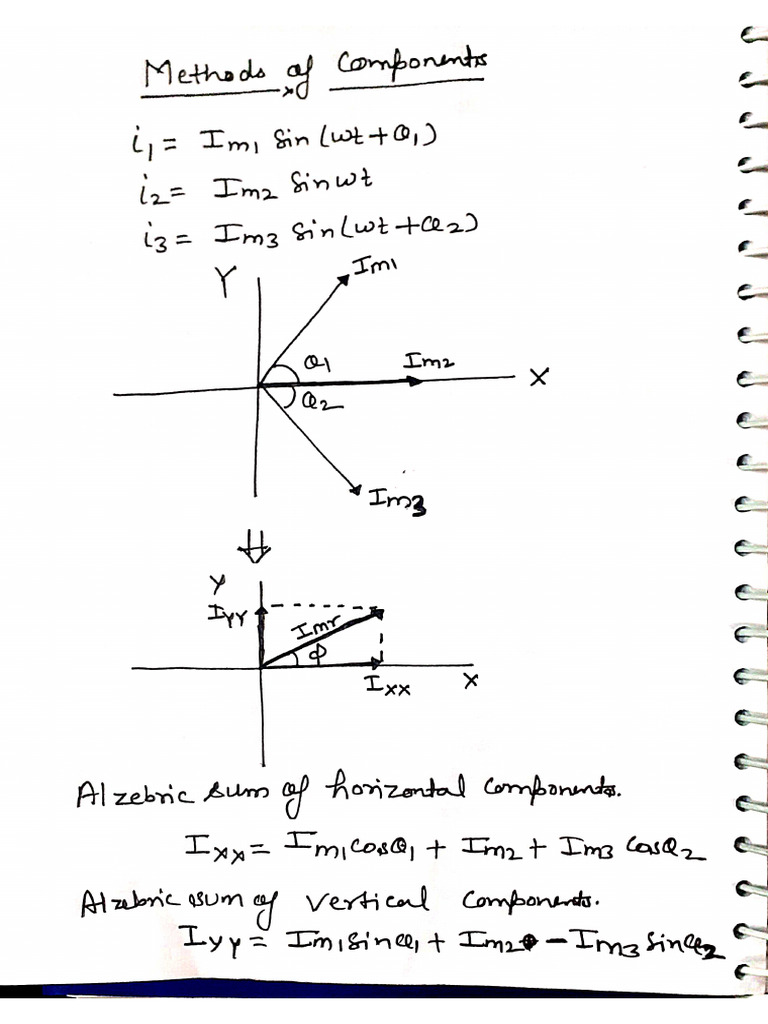 Methods of Components
i1 = Im1 Sin (wt + θ1)
i2 = Im2 Sinwt
i3 = Im3 Sin(wt + θ2)
Y
Im1
θ1
Im2
X
θ2
Im3
⇓
Y
IYY
Imr
ϕ
IXX
X
Alzebric sum of horizontal components.
IXX = Im1cosθ1 + Im2 + Im3 cosθ2
Alzebric sum of vertical components.
IYY = Im1sinθ1 + Im20 - Im3 sinθ2